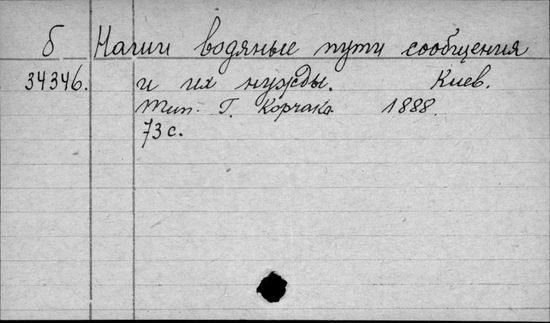 б Наши водяные пути сообщения
34346. и их нужды. Киев.
Тип. Г. Корчак. 1888.
73 с.